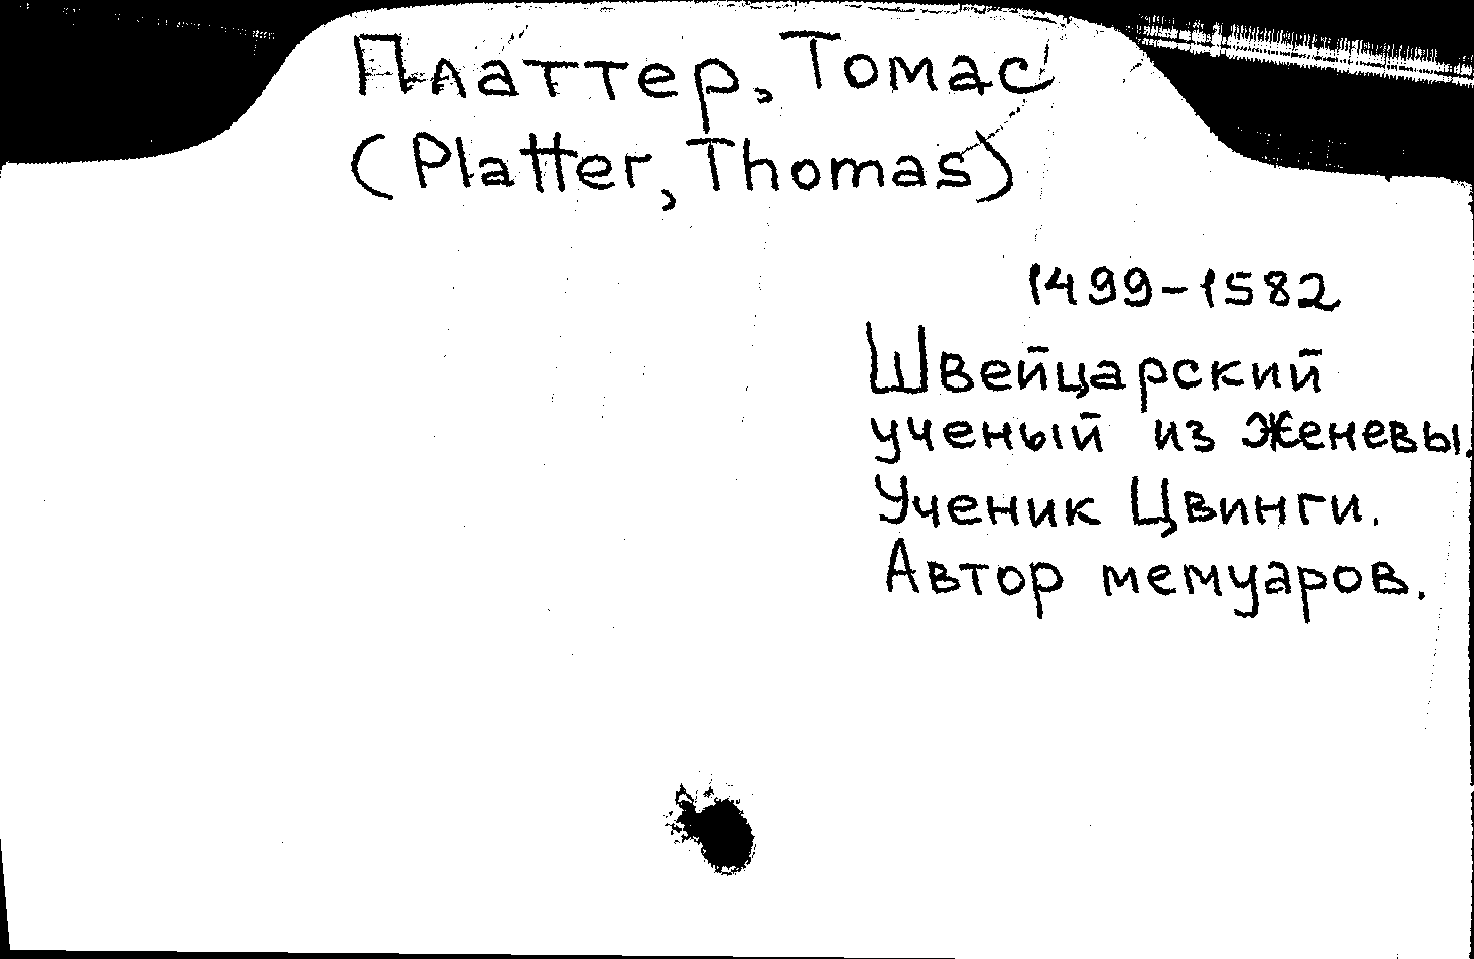 Платтер, Томас
(Platter, Thomas)
1499-1582
Швейцарский
ученый из Женевы.
Ученик Цвинги.
Автор мемуаров.